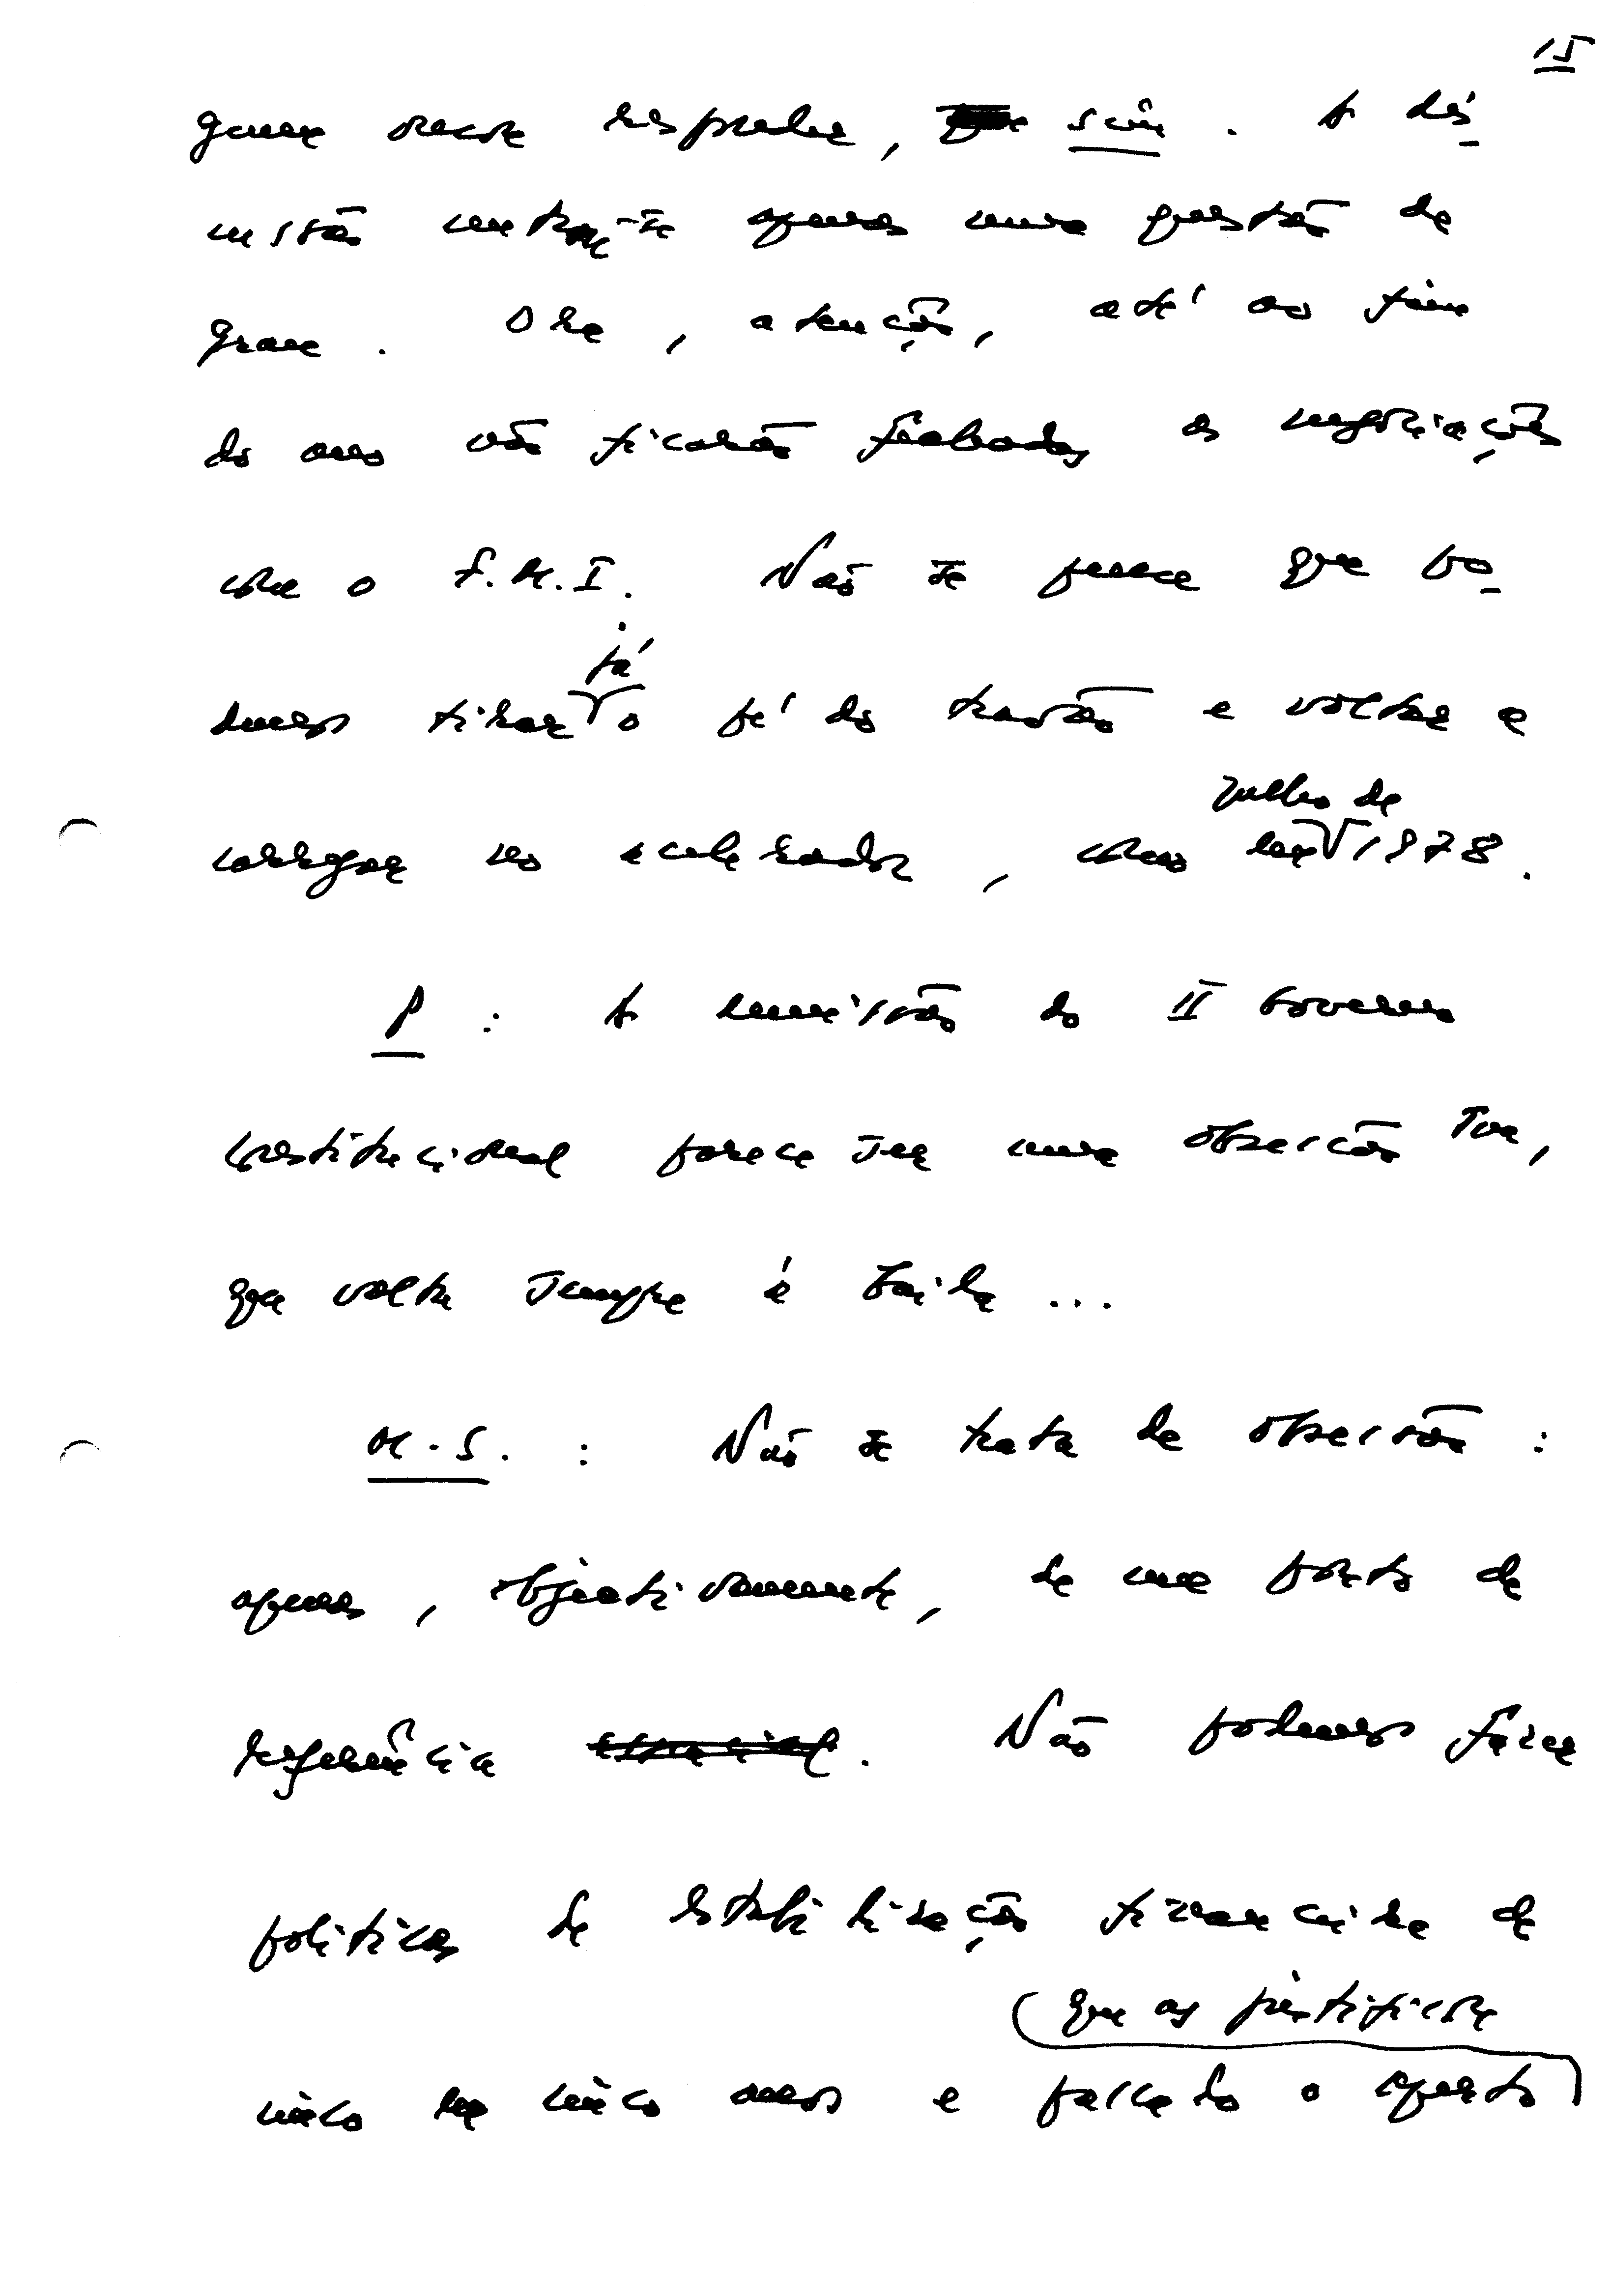 15
nesse respeito, sim. A dis-
cussão centrou-se apenas numa questão de
grau. Ora, atenção, até ao fim
do ano vão ficar fechadas as negociações
com o F.M.I. Não se pense que po-
demos tirar já o pé do travão e voltar a
carregar no acelerador, como em Julho de 1978.
P: A demissão do II Governo
Constitucional parece ser uma obsessão sua,
que volta sempre à baila...
M.S.: Não se trata de obsessão:
apenas, objectivamente, de um ponto de
referência. Não podemos fazer
políticas de estabilização financeira de
que as justificou
cinco em cinco anos e passado o aperto